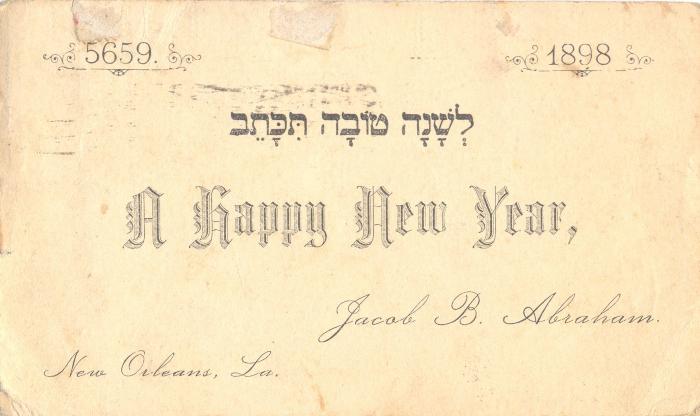 5659. 1898
לְשָׁנָה טוֹבָה תִּכָּתֵב
A Happy New Year,
Jacob B. Abraham.
New Orleans, La.